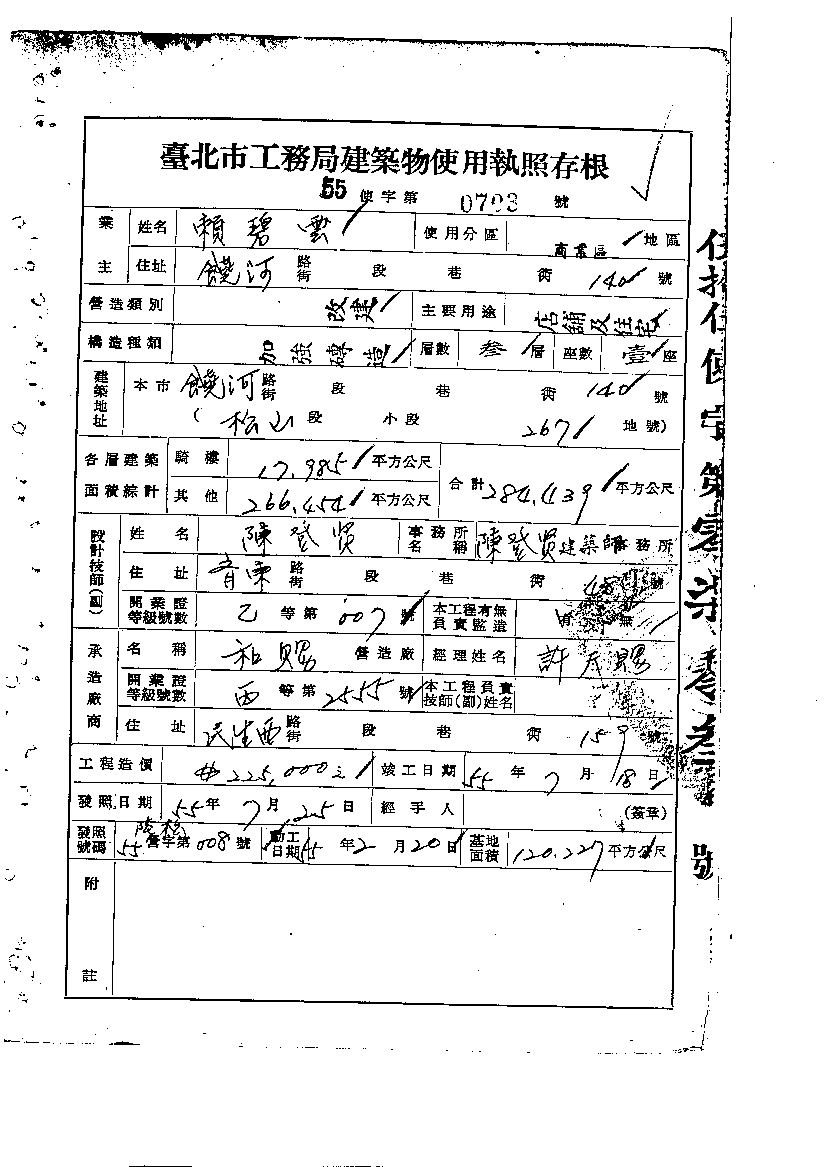 臺北市工務局建築物使用執照存根
55 使字第 0703 號
業主 姓名 賴碧雲 使用分區 商業區 地區
住址 饒河 路街 段 巷 衖 140 號
營造類別 改建 主要用途 店舖及住宅
構造種類 加強磚造 層數 叁 層 座數 壹 座
建築地址 本市 饒河 路街 段 巷 衖 140 號
(松山 段 小段 267 地號)
各層建築面積綜計 騎樓 17.985 平方公尺 合計 284.439 平方公尺
其他 266.454 平方公尺
設計技師(副) 姓名 陳登賢 事務所名稱 陳登賢建築師事務所
住址 路街 段 巷 衖 號
開業證等級號數 乙 等第 007 號 本工程有無負責監造 有 無
承造廠商 名稱 和賜 營造廠 經理姓名 許天賜
開業證等級號數 丙 等第 2555 號 本工程負責技師(副)姓名
住址 民生西 路街 段 巷 衖 159 號
工程造價 225,000 竣工日期 55 年 7 月 18 日
發照日期 55 年 7 月 25 日 經手人 (簽章)
發照號碼 55 營字第 008 號 動工日期 55 年 2 月 20 日 基地面積 120.227 平方公尺
附註
伍拾伍使字第零柒零叁號